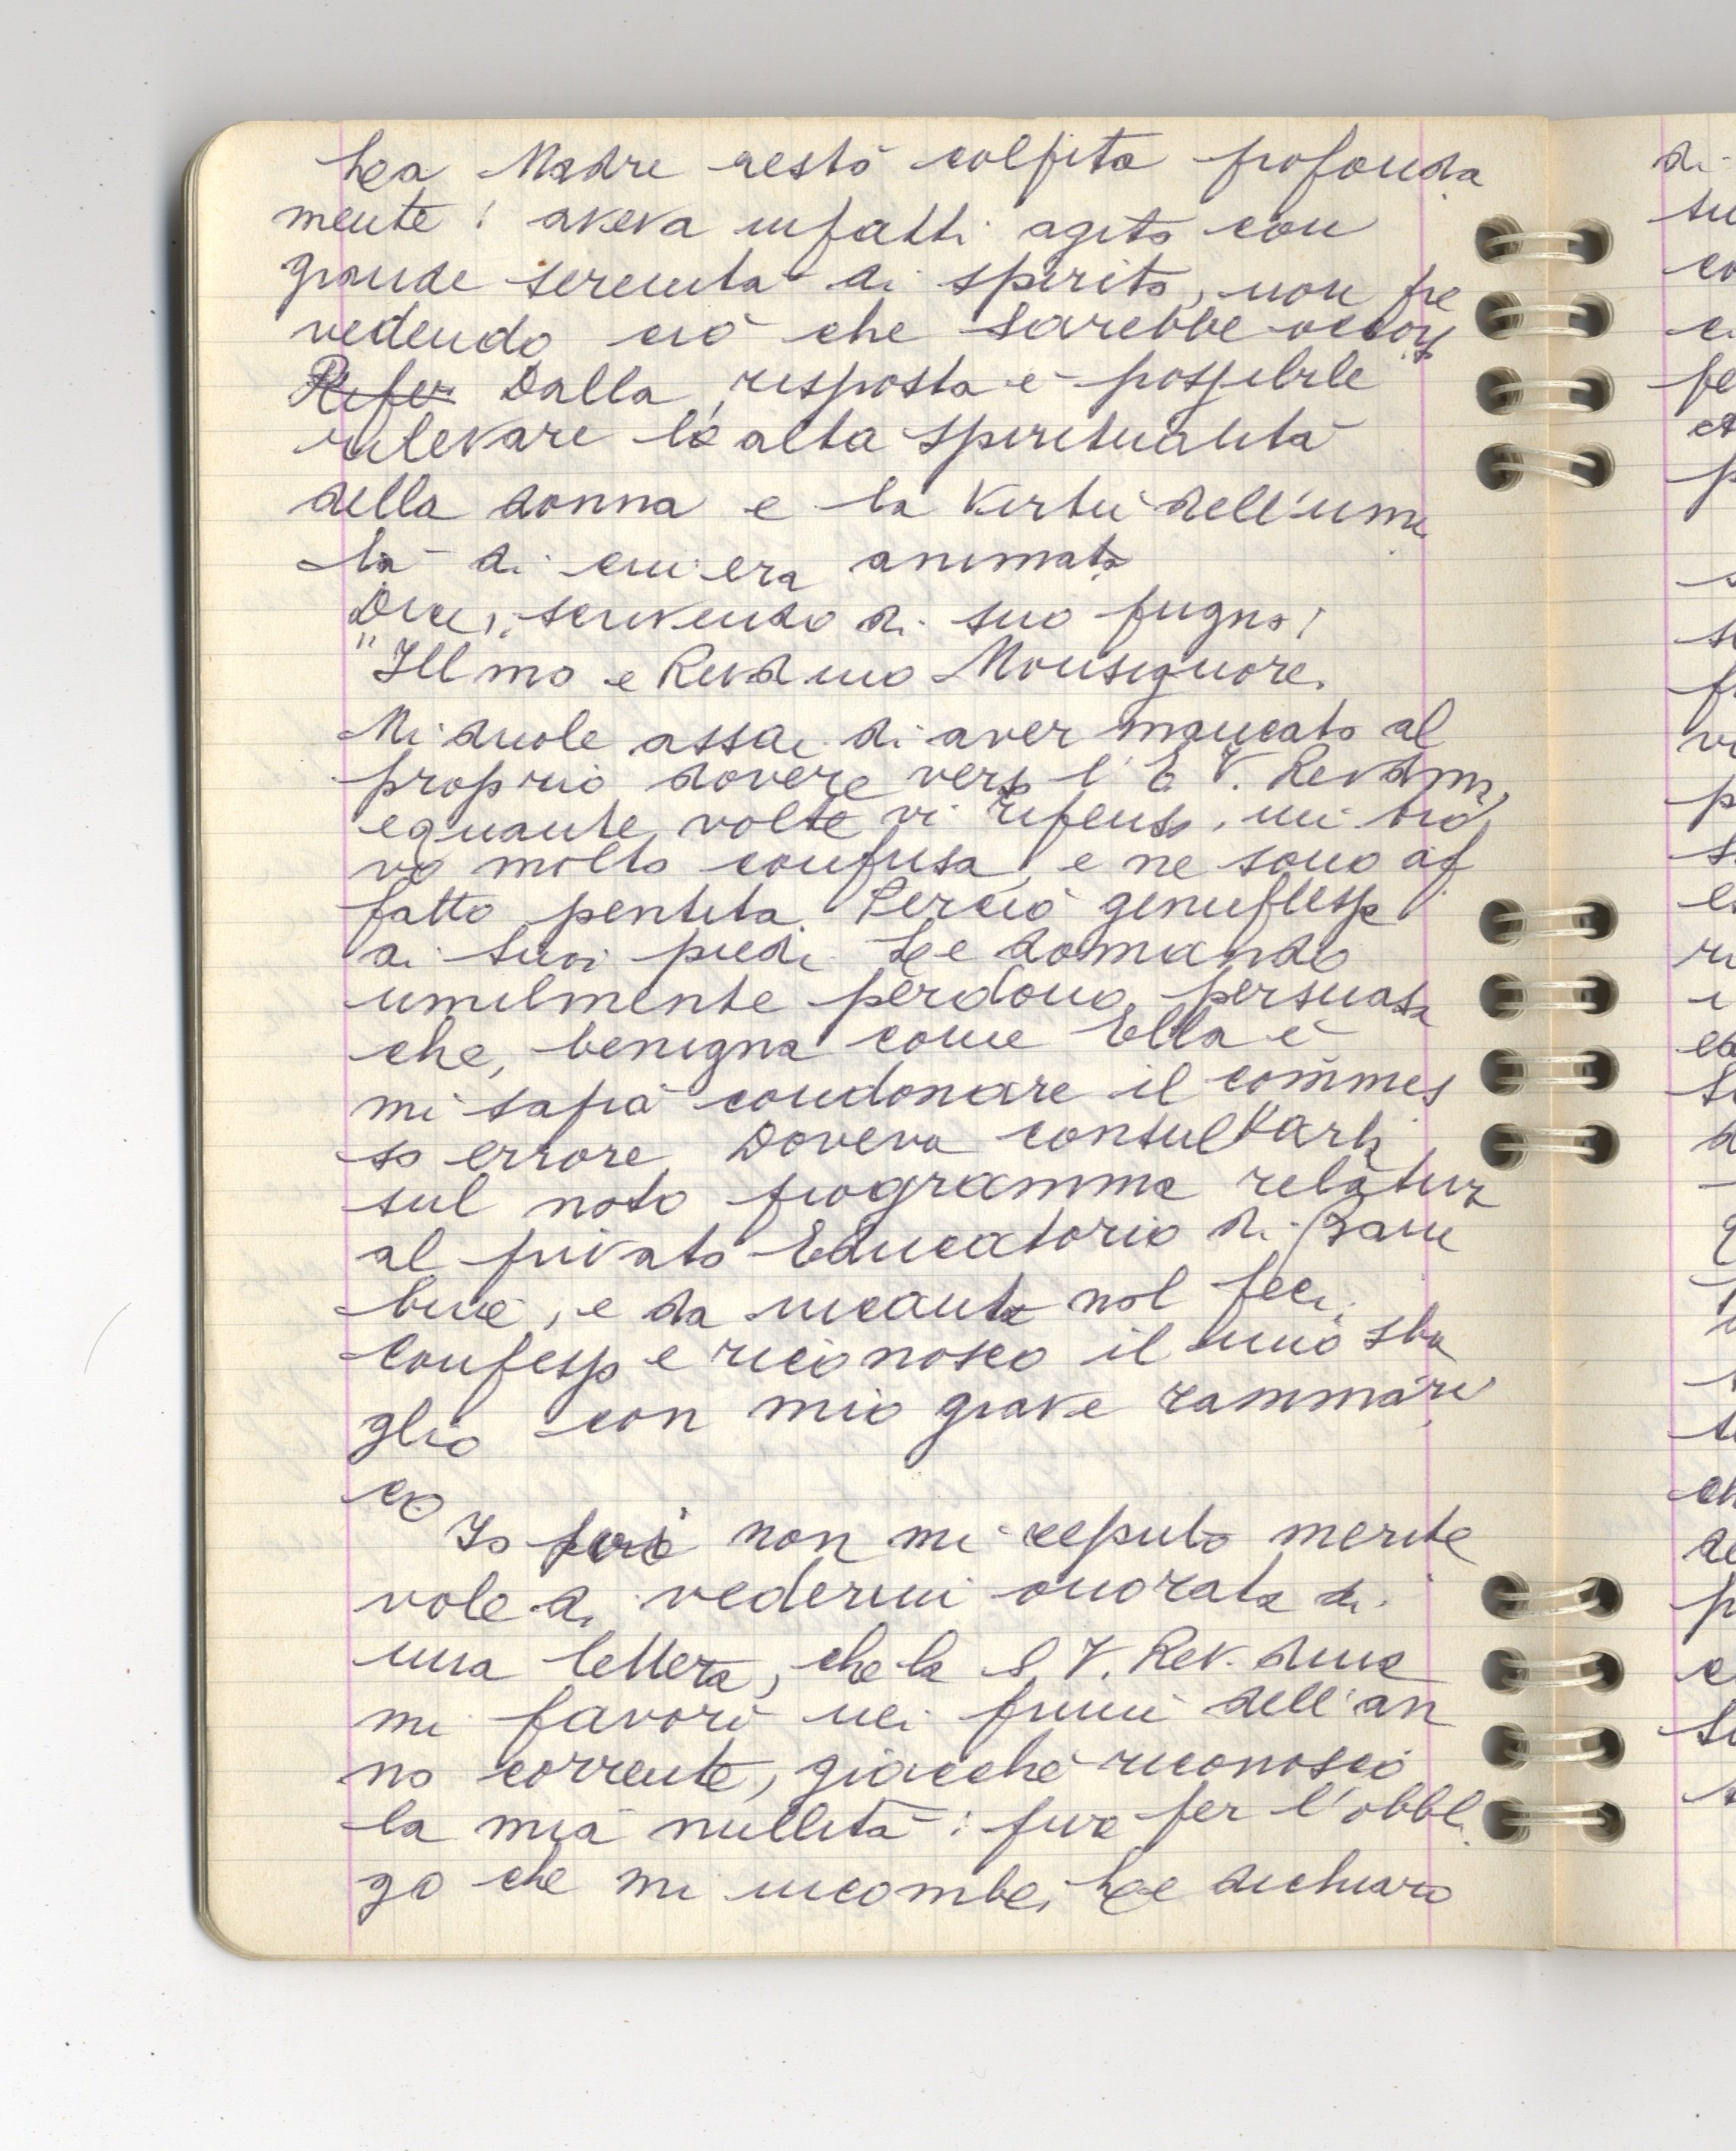 La Madre restò colpita profonda
mente: aveva infatti agito con
grande serenità di spirito, non pre
vedendo ciò che sarebbe occorso
Rifer Dalla risposta è possibile
rilevare la alta spiritualità
della donna e la virtù dell'umil
tà di cui era animata
Dice, scrivendo di suo pugno:
"Illmo e Revdmo Monsignore.
Mi duole assai di aver mancato al
proprio dovere verso l'E V. Revdma,
e quante volte vi ripenso, mi tro
vo molto confusa, e ne sono af
fatto pentita. Perciò genuflessa
ai suoi piedi Le domando
umilmente perdono, persuasa
che, benigna come Ella è
mi saprà condonare il commes
so errore. Doveva consultarLa
sul noto programma relativo
al privato Educatorio di
e da incauta nol feci.
Confesso e riconosco il mio sba
glio con mio grave rammari
co
Io però non mi reputo merite
vole di vedermi onorata di
una lettera, che la S. V. Rev.dma
mi favorì nei primi dell'an
no corrente, giacchè riconosco
la mia nullità: pure per l'obbli
go che mi incombe, Le dichiaro
di
su
co
pe
p
s
su
vi
p
s
ri
i
p